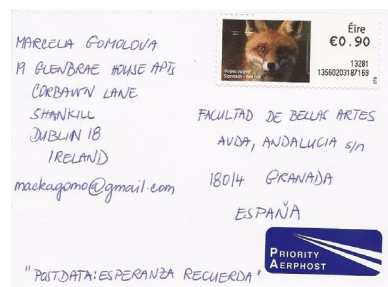 MARCELA GOMOLOVA
19 GLENBRAE HOUSE APTS
CORBAWN LANE
SHANKILL
DUBLIN 18
IRELAND
mackagomo@gmail.com
Éire
€0.90
Vulpes vulpes
Sionnach - Red Fox
13281
13560203187169
FACULTAD DE BELLAS ARTES
AVDA, ANDALUCIA s/n
18014 GRANADA
ESPAÑA
PRIORITY
AERPHOST
"POSTDATA: ESPERANZA RECUERDA"